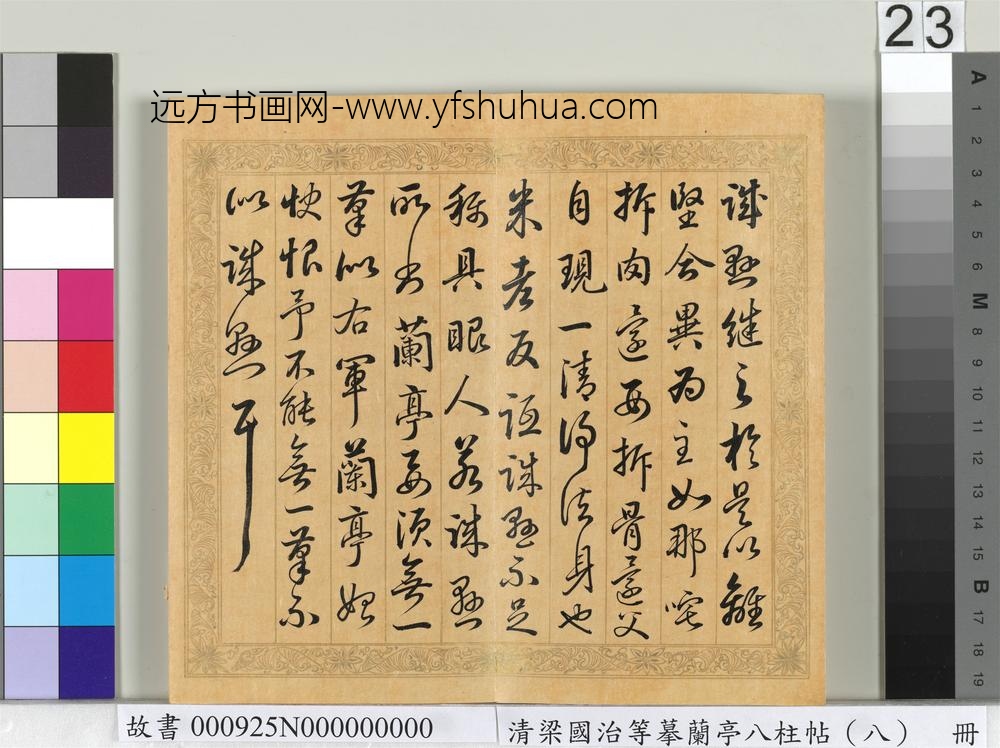 23
远方书画网-www.yfshuhua.com
誠懸継之於是以離
堅合異為主如那咤
拆肉還母拆骨還父
自現一清淨法身也
米老反詆誠懸不足
稱具眼人若誠懸
所書蘭亭要須無一
筆似右軍蘭亭始
快恨予不能無一筆不
似誠懸耳
A
1
2
3
4
5
6
M
8
9
10
11
12
13
14
15
B
17
18
19
故書 000925N000000000
清梁國治等摹蘭亭八柱帖（八） 冊